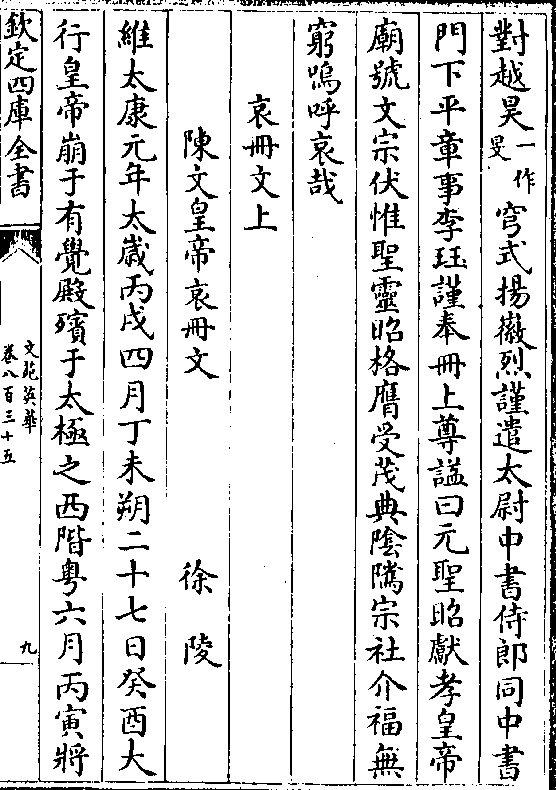 對越昊一作旻穹式揚徽烈謹遣太尉中書侍郎同中書
門下平章事李珏謹奉冊上尊諡曰元聖昭獻孝皇帝
廟號文宗伏惟聖靈昭格膺受茂典陰隲宗社介福無
窮嗚呼哀哉
哀冊文上
陳文皇帝哀冊文 徐陵
維太康元年太歲丙戌四月丁未朔二十七日癸酉大
行皇帝崩于有覺殿殯于太極之西階粵六月丙寅將
欽定四庫全書
文苑英華
卷八百三十五
九